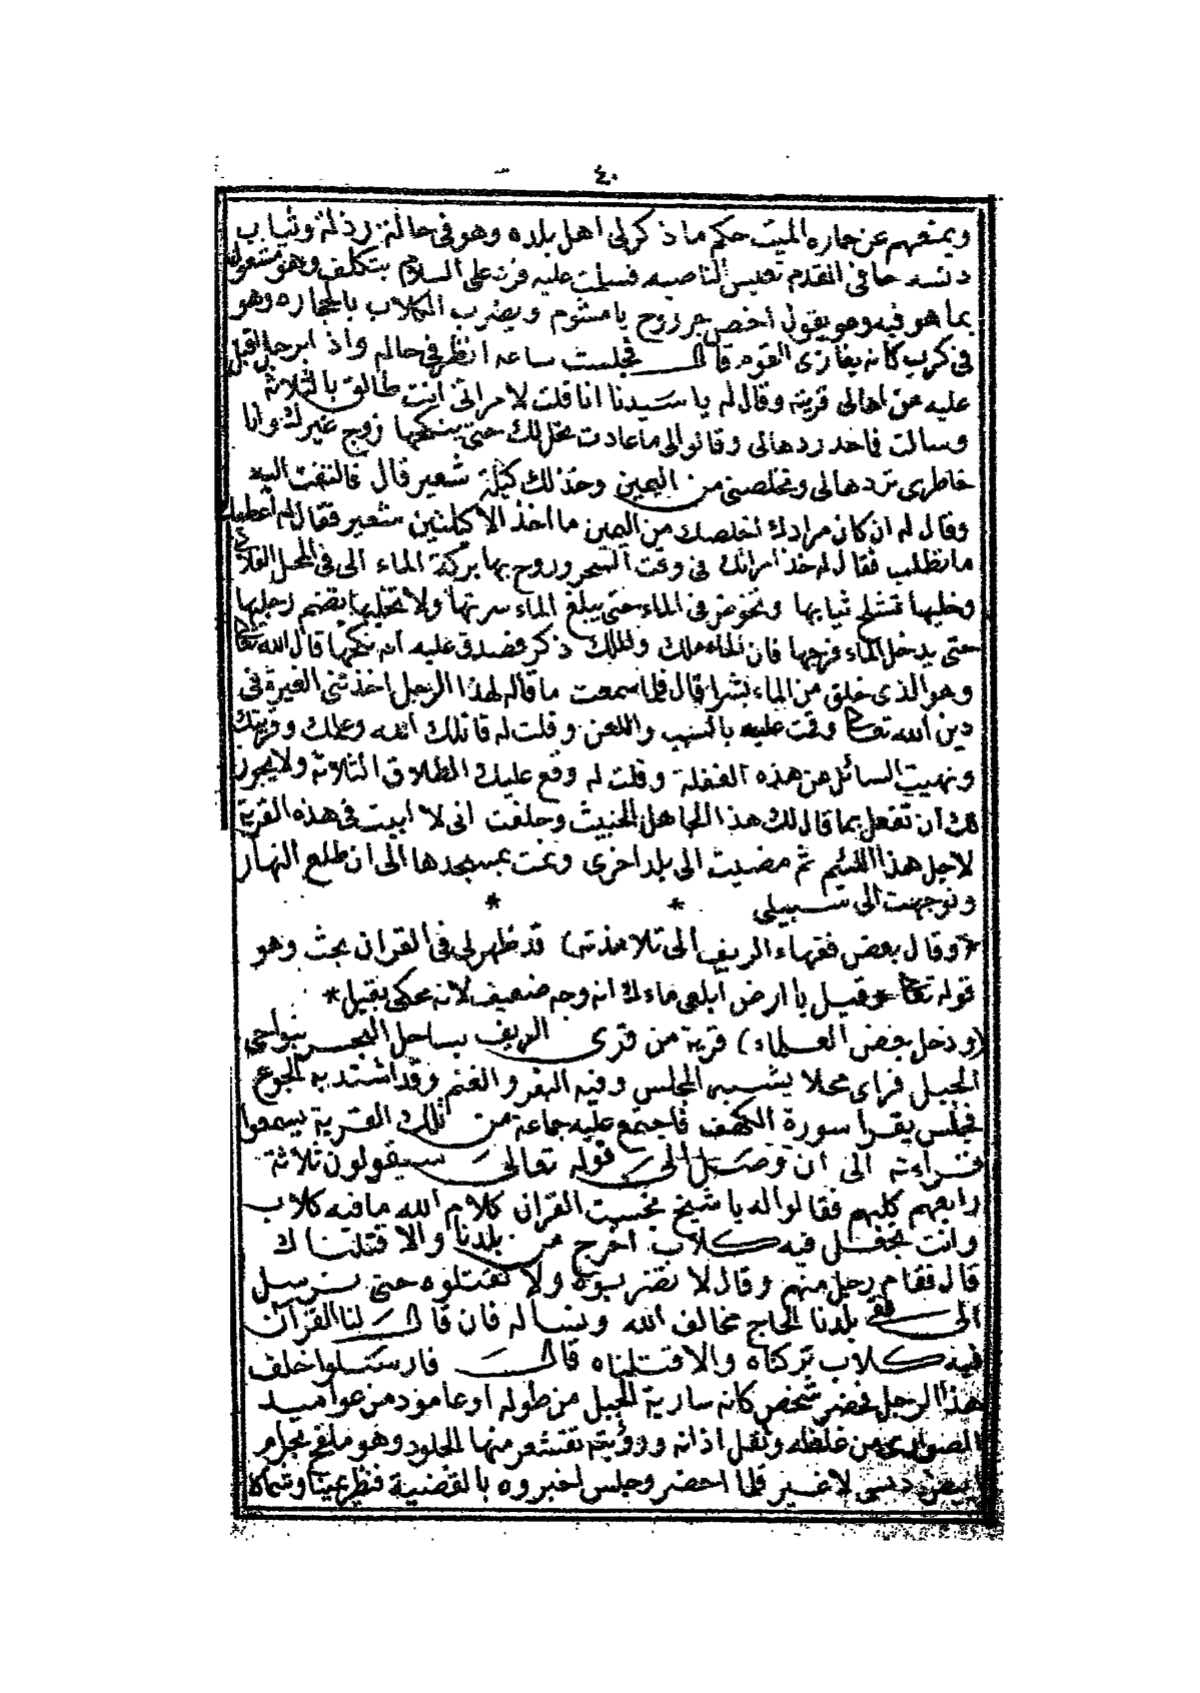 ٤٠
ويمنعهم عن حماره الميت حكم ما ذكر لي اهل بلده وهو في حالة رذلة وثياب
دنسه حافي القدم تعيس الناصيه فسلمت عليه فرد على السلام بتكلف وهو مشغول
بما هو فيه وهو يقول اخص جر زوح يا مشوم ويضرب الكلاب بالحجاره وهو
في كرب كانه يغازى القوم قال فجلست ساعه انظر في حاله واذا برجل اقبل
عليه من اهالى قريته وقال له يا سيدنا انا قلت لامراتى انت طالق بالثلاثه
وسالت فاحد ردهالى وقالوا لى ما عادت تحل لك حتى ينكحها زوج غيرك وانا
خاطرى تردهالى وتخلصنى من اليمين وخذ لك كيلة شعير قال فالتفت اليه
وقال له ان كان مرادك اخلصك من اليمين ما اخذ الا كيلتين شعير فقال له اعطيك
ما تطلب فقال له خذ امراتك في وقت السحر وروح بها بركة الماء الى في المحل الفلاني
وخليها تشلح ثيابها وتخوض في الماء حتى يبلغ الماء سرتها ولا تخليها تضم رجليها
حتى يدخل الماء فرجها فان الماء ملك والملك ذكر فصدق عليه انه نكحها قال الله تعالى
وهو الذى خلق من الماء بشرا قال فلما سمعت ما قاله لهذا الرجل اخذتنى الغيرة في
دين الله تعالى وقمت عليه بالسب واللعن وقلت له قاتلك الله وعملك وقريتك
ونهيت السائل عن هذه الفعلة وقلت له وقع عليك الطلاق الثلاثه ولا يجوز
لك ان تفعل بما قال لك هذا الجاهل الخبيث وحلفت انى لا ابيت في هذه القرية
لاجل هذا اللئيم ثم مضيت الى بلد اخرى ونمت بمسجدها الى ان طلع النهار
وتوجهت الى سبيلى * *
(وقال بعض فقهاء الريف الى تلامذته) قد ظهر لى في القران بحث وهو
قوله تعالى وقيل يا ارض ابلعى ماءك انه وجه ضعيف لانه محكى بقيل *
(ودخل بعض العلماء) قرية من قرى الريف بساحل البحر بنواحى
الجبل فراى محلا يشبه المجلس وفيه البقر والغنم وقد اشتد به الجوع
فجلس يقرا سورة الكهف فاجتمع عليه جماعة من تلك القرية يسمعوا
قراءته الى ان وصل الى قوله تعالى سيقولون ثلاثة
رابعهم كلبهم فقالوا له يا شيخ القران كلام الله ما فيه كلاب
وانت تجعل فيه كلاب اخرج من بلدنا والا قتلناك
قال فقام رجل منهم وقال لا تضربوه ولا تقتلوه حتى نرسل
الى فقى بلدنا الحاج مخالف الله ونساله فان قال لنا القران
فيه كلاب تركناه والا قتلناه قال فارستلوا خلف
هذا الرجل فحضر شخص كانه سارية الجبل من طوله او عامود من عواميد
الصوارى من غلظه وثقل اذانه ورؤيته تقشعر منها الجلود وهو ملفع بحرام
ابيض دنسى لا غير فلما احضر وجلس اخبروه بالقضية فنظر يمينا وشمالا